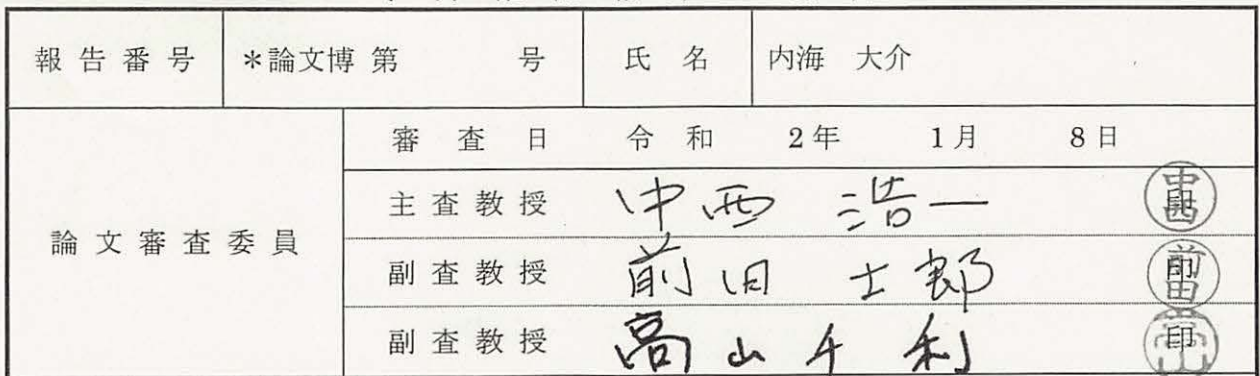 報告番号 ＊論文博第 号 氏名 内海 大介
論文審査委員
審査日 令和 2年 1月 8日
主査教授 中西 浩一 中西 印
副査教授 前田 士郎 前田 印
副査教授 高山千利 印